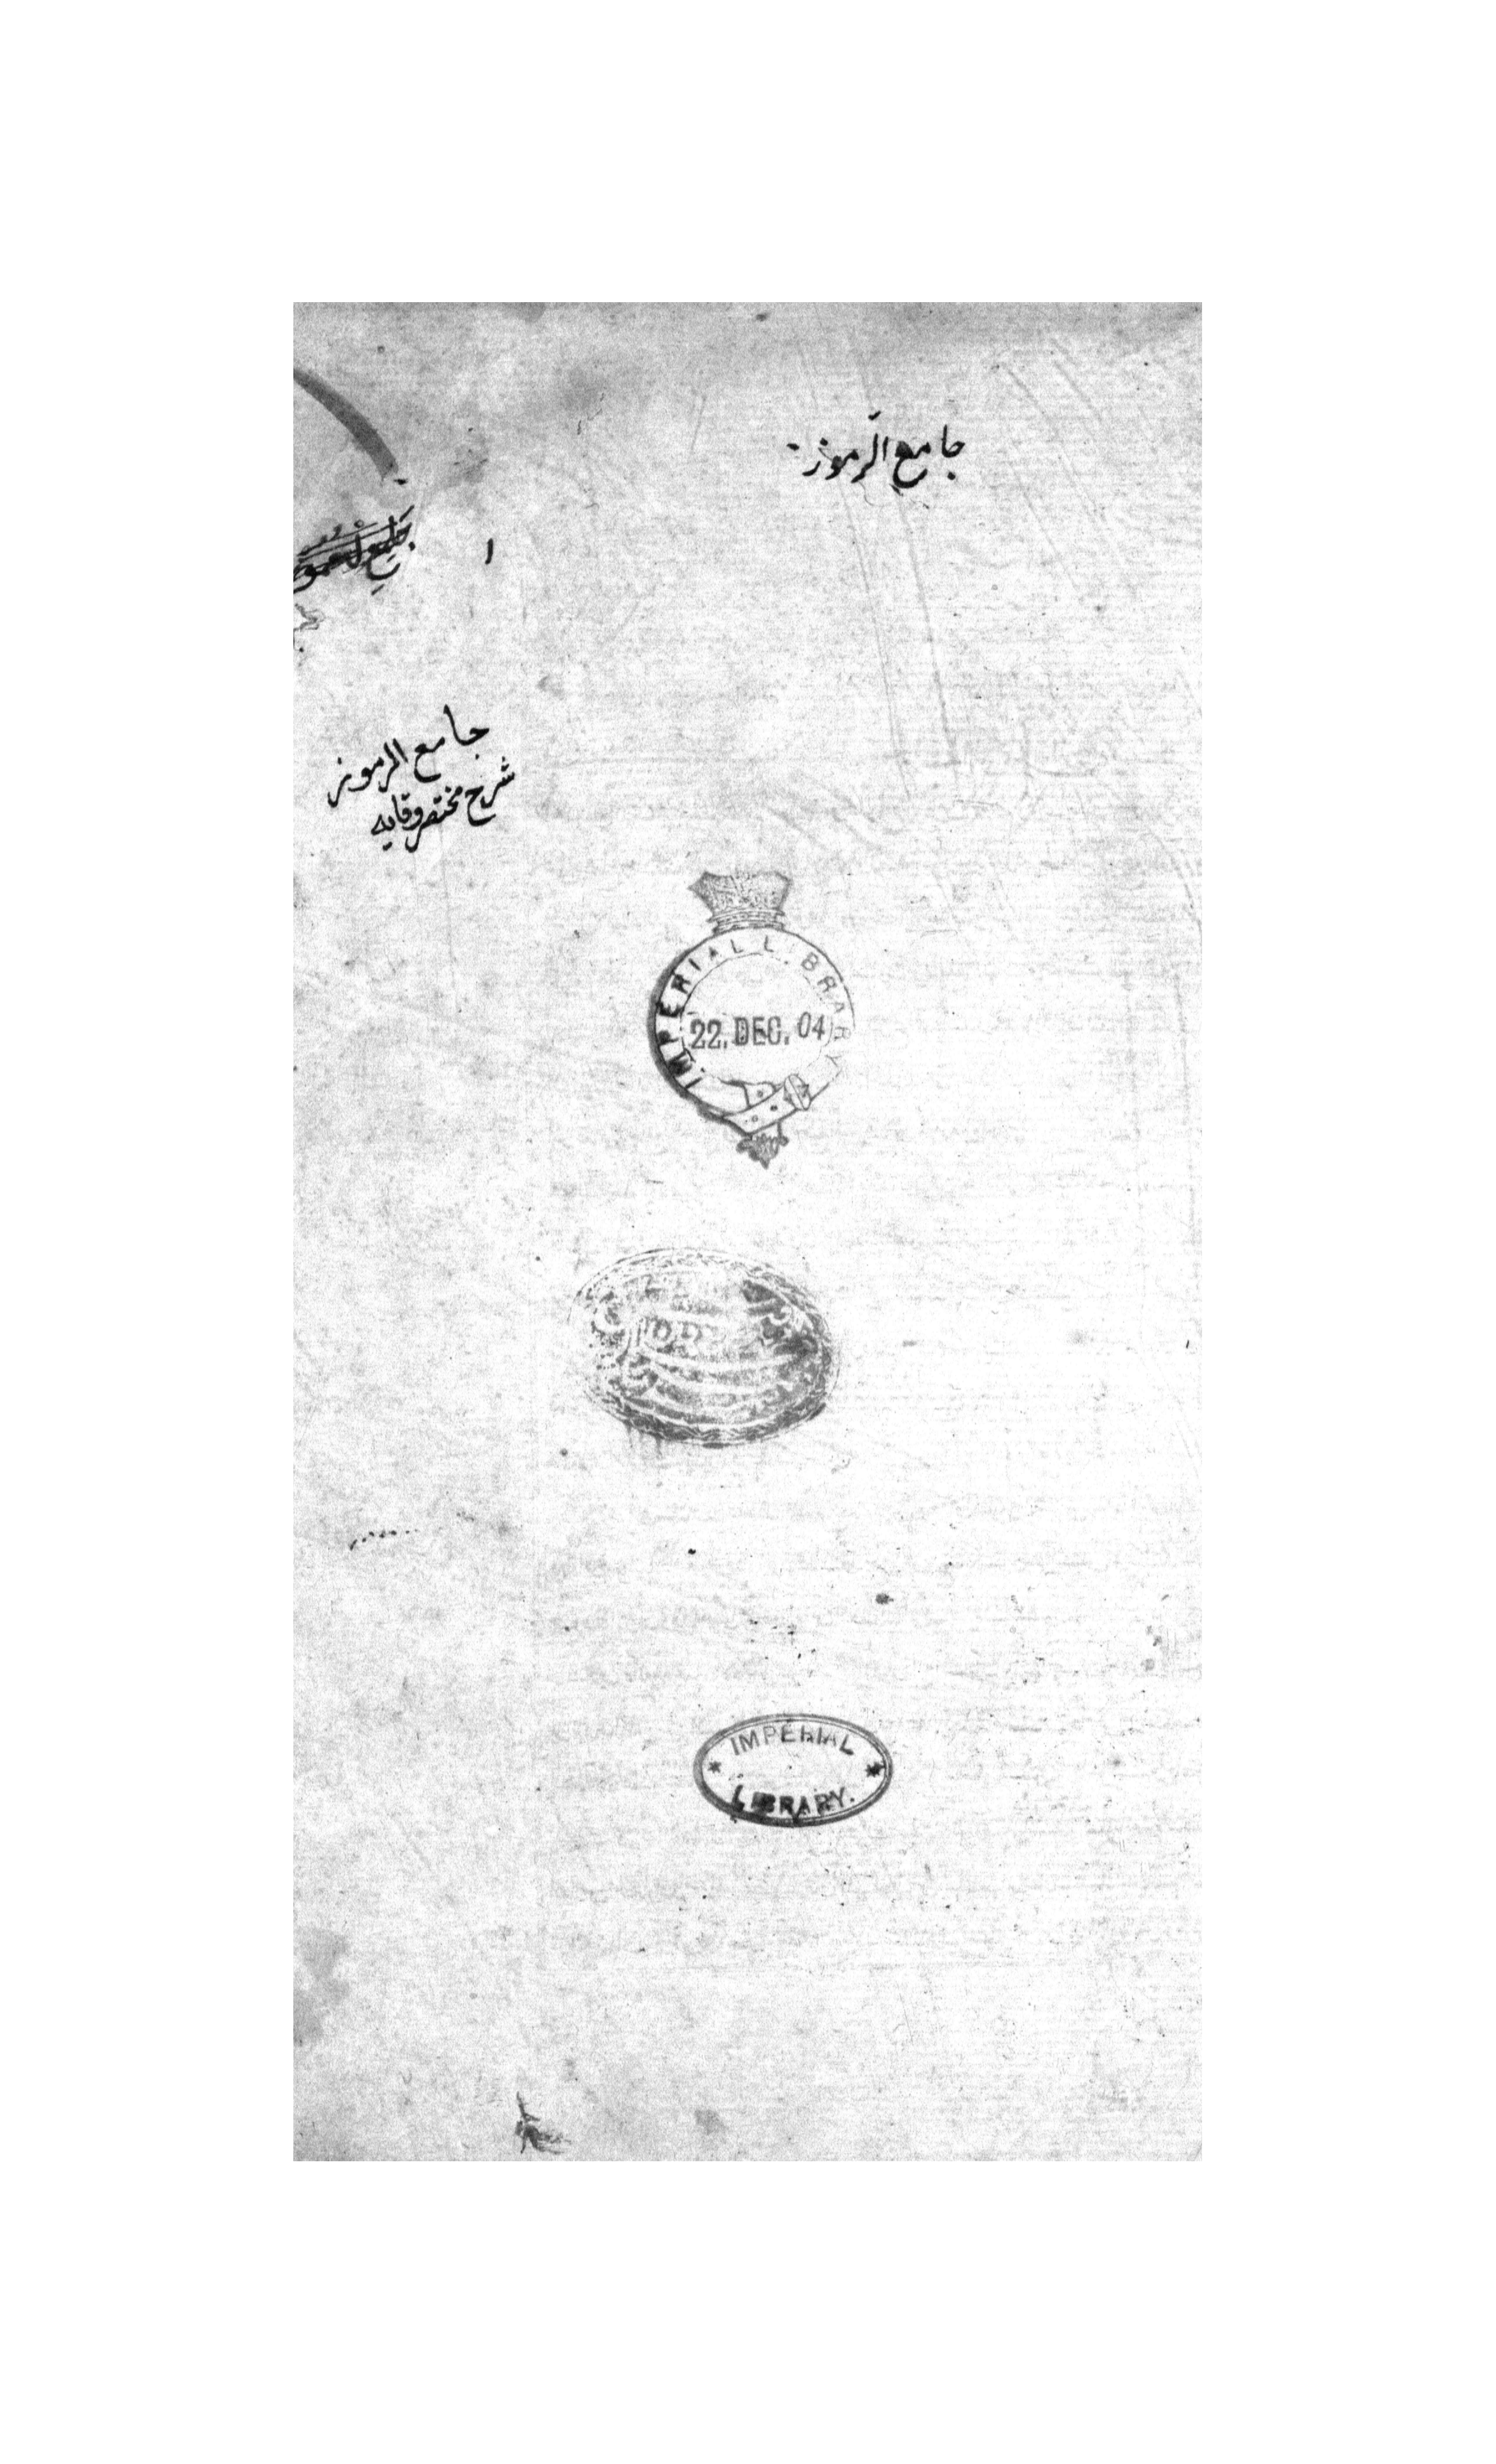 جامع الرموز
۱
جامع الرموز
شرح مختصر وقایه
IMPERIAL LIBRARY
22. DEC. 04
IMPERIAL
LIBRARY.